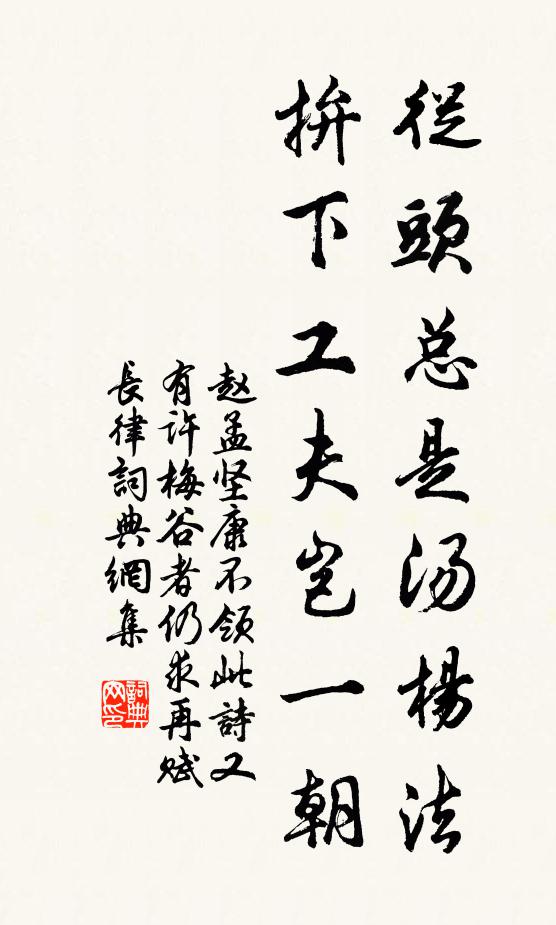 從頭总是汤楊法
拚下工夫岂一朝
赵孟坚康不领此詩又
有许梅谷者仍求再赋
長律詞典網集
詞典
网印